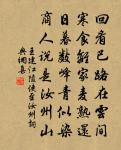 回看巴路在雲間
寒食離家麥熟還
日暮數峰青似染
商人說是汝州山
王建江陵使至汝州詞
典網集